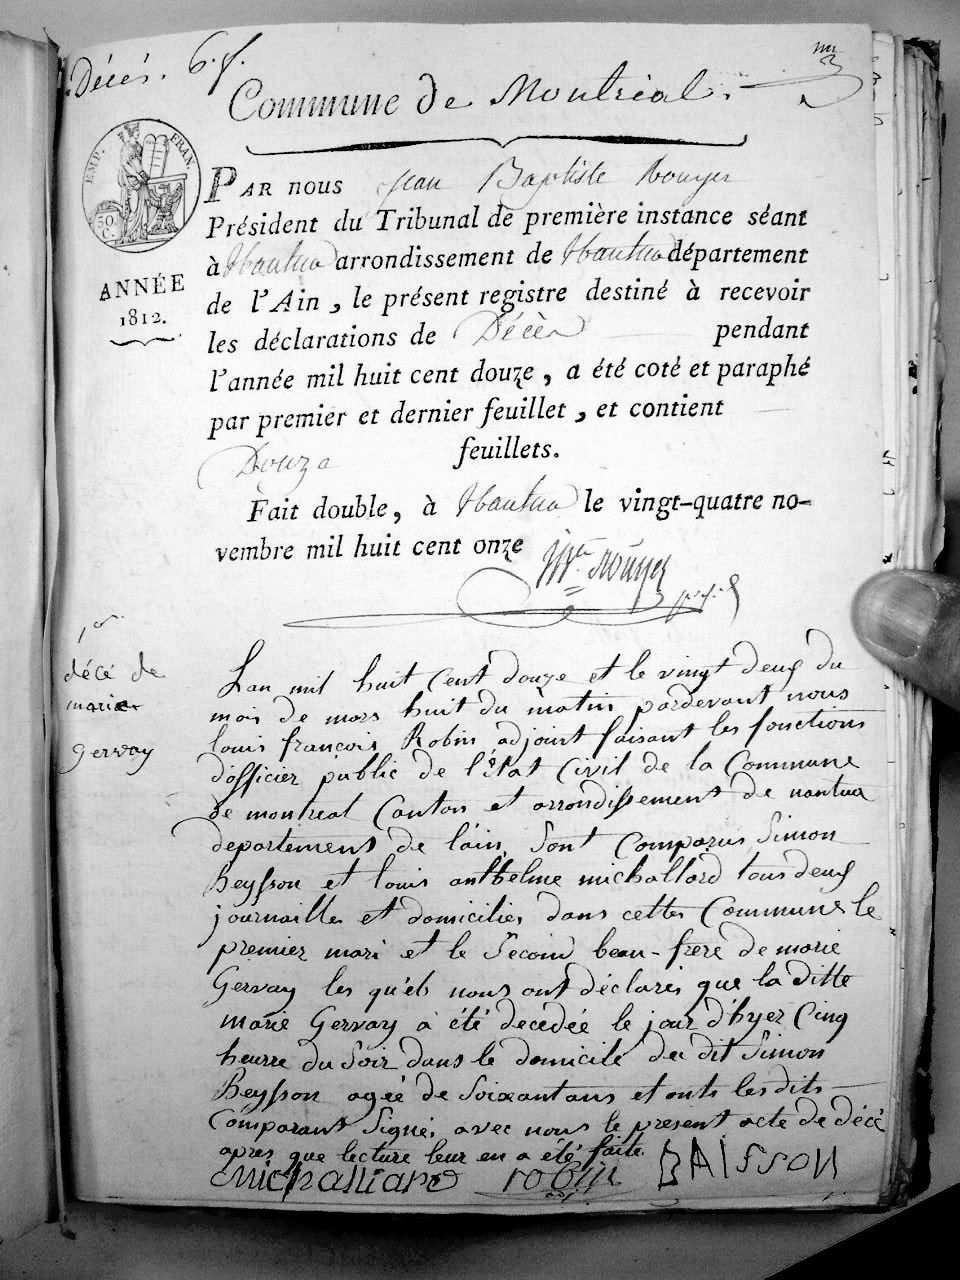 Décés. 6. f.
Commune de Montréal.
EMP. FRAN.
50 C.
ANNÉE
1812.
PAR nous Jean Baptiste Rouyer
Président du Tribunal de première instance séant
à Nantua arrondissement de Nantua département
de l'Ain, le présent registre destiné à recevoir
les déclarations de Décès pendant
l'année mil huit cent douze, a été coté et paraphé
par premier et dernier feuillet, et contient
Douze feuillets.
Fait double, à Nantua le vingt-quatre no-
vembre mil huit cent onze
Rouyer
1er
décé de
marie
Gervay
Lan mil huit Cent douze et le vingt deux du
mois de mars huit du matin pardevant nous
louis françois Robin adjoint faisant les fonctions
d'officier public de l'État Civil de la Commune
de montreal Canton et arrondissement de nantua
departement de lain, sont Comparus Simon
Beysson et louis anthelme michallard tous deux
journaille et domiciliés dans cette Commune le
premier mari et le second beau-frere de marie
Gervay les qu'els nous ont déclarés que la ditte
marie Gervay à été decedée le jour d'hyer Cinq
heurre du Soir dans le domicile du dit Simon
Beysson agée de Soixantans et onts lesdits
Comparant Signé, avec nous le present acte de décé
apres que lecture leur en a été faite.
michalliard robin BAISSON
adj.